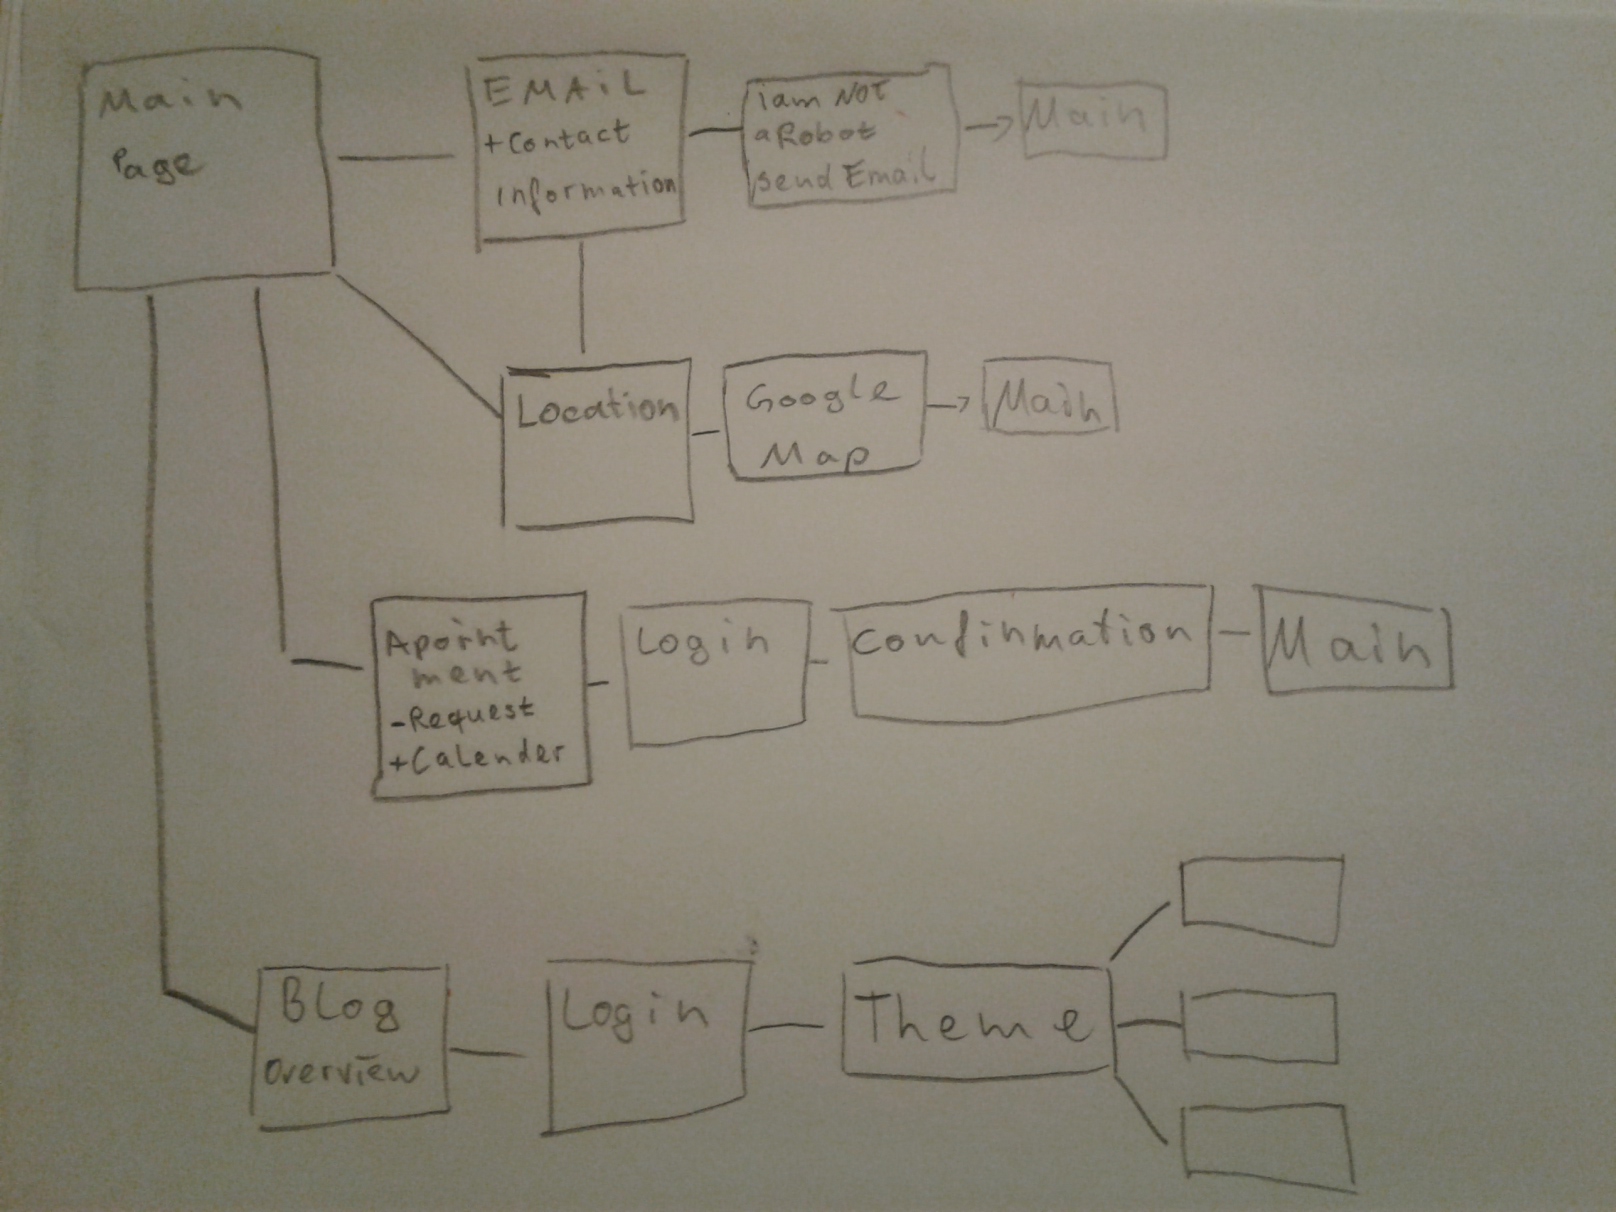 Main
Page
EMAiL
+Contact
information
iam NOT
a Robot
send Email
Main
Location
Google
Map
Main
Apoint
ment
-Request
+Calender
Login
Confinmation
Main
BLog
overview
Login
Theme